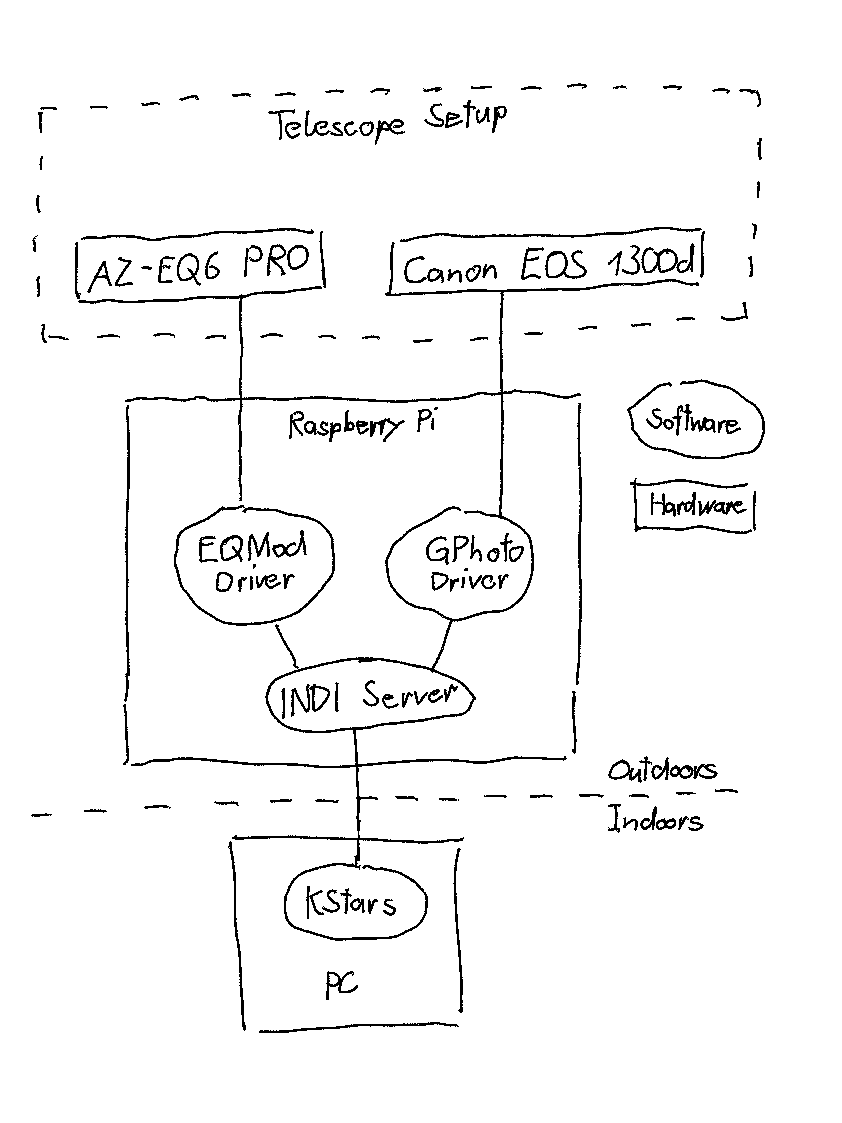 Telescope Setup
AZ-EQ6 PRO
Canon EOS 1300d
Raspberry Pi
Software
Hardware
EQMod
Driver
GPhoto
Driver
INDI Server
Outdoors
Indoors
KStars
PC